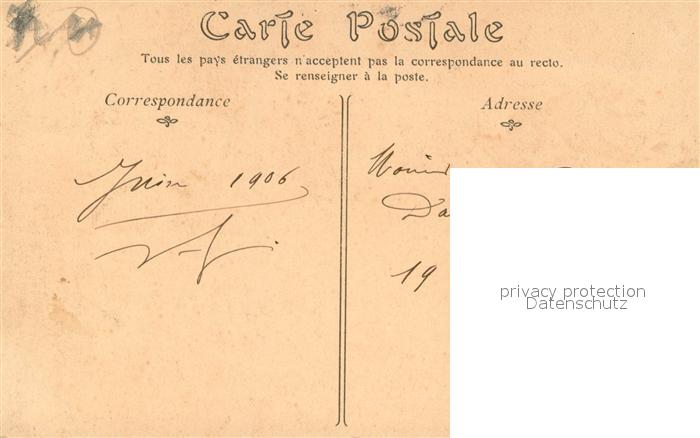 Carte Postale
Tous les pays étrangers n'acceptent pas la correspondance au recto.
Se renseigner à la poste.
Correspondance
Adresse
Juin 1906
Da
19
privacy protection
Datenschutz